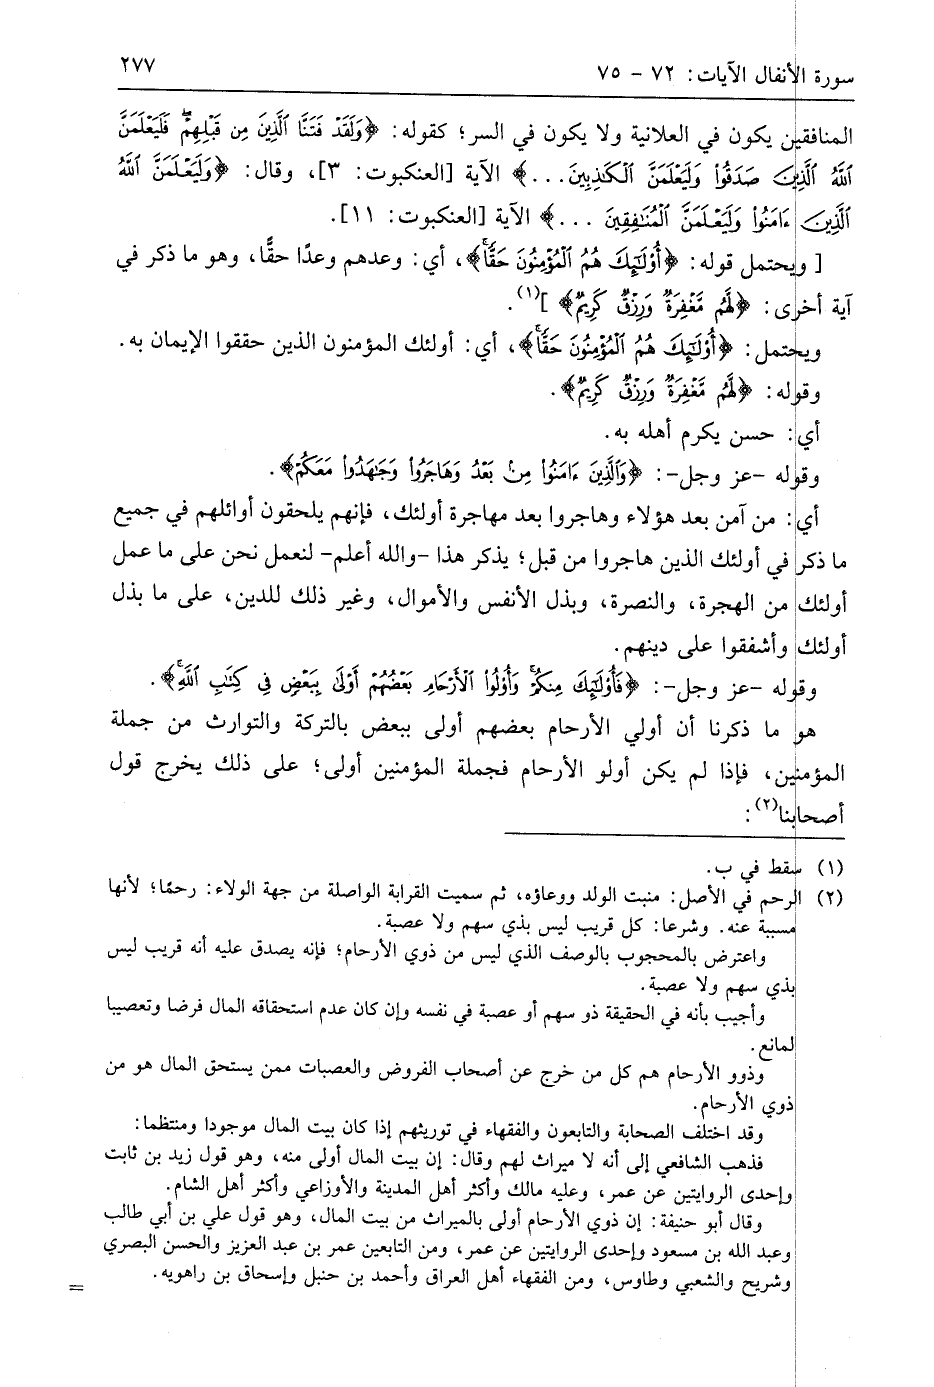 سورة الأنفال الآيات: ٧٢ - ٧٥ ٢٧٧
المنافقين يكون في العلانية ولا يكون في السر؛ كقوله: ﴿وَلَقَدْ فَتَنَّا ٱلَّذِينَ مِن قَبْلِهِمْ فَلَيَعْلَمَنَّ
ٱللَّهُ ٱلَّذِينَ صَدَقُوا۟ وَلَيَعْلَمَنَّ ٱلْكَـٰذِبِينَ...﴾ الآية [العنكبوت: ٣]، وقال: ﴿وَلَيَعْلَمَنَّ ٱللَّهُ
ٱلَّذِينَ ءَامَنُوا۟ وَلَيَعْلَمَنَّ ٱلْمُنَـٰفِقِينَ ...﴾ الآية [العنكبوت: ١١].
[ ويحتمل قوله: ﴿أُو۟لَـٰٓئِكَ هُمُ ٱلْمُؤْمِنُونَ حَقًّا﴾، أي: وعدهم وعدًا حقًّا، وهو ما ذكر في
آية أخرى: ﴿لَّهُم مَّغْفِرَةٌ وَرِزْقٌ كَرِيمٌ﴾ ](١).
ويحتمل: ﴿أُو۟لَـٰٓئِكَ هُمُ ٱلْمُؤْمِنُونَ حَقًّا﴾، أي: أولئك المؤمنون الذين حققوا الإيمان به.
وقوله: ﴿لَّهُم مَّغْفِرَةٌ وَرِزْقٌ كَرِيمٌ﴾.
أي: حسن يكرم أهله به.
وقوله -عز وجل-: ﴿وَٱلَّذِينَ ءَامَنُوا۟ مِنۢ بَعْدُ وَهَاجَرُوا۟ وَجَـٰهَدُوا۟ مَعَكُمْ﴾.
أي: من آمن بعد هؤلاء وهاجروا بعد مهاجرة أولئك، فإنهم يلحقون أوائلهم في جميع
ما ذكر في أولئك الذين هاجروا من قبل؛ يذكر هذا -والله أعلم- لنعمل نحن على ما عمل
أولئك من الهجرة، والنصرة، وبذل الأنفس والأموال، وغير ذلك للدين، على ما بذل
أولئك وأشفقوا على دينهم.
وقوله -عز وجل-: ﴿فَأُو۟لَـٰٓئِكَ مِنكُمْ وَأُو۟لُوا۟ ٱلْأَرْحَامِ بَعْضُهُمْ أَوْلَىٰ بِبَعْضٍ فِى كِتَـٰبِ ٱللَّهِ﴾.
هو ما ذكرنا أن أولي الأرحام بعضهم أولى ببعض بالتركة والتوارث من جملة
المؤمنين، فإذا لم يكن أولو الأرحام فجملة المؤمنين أولى؛ على ذلك يخرج قول
أصحابنا(٢):
(١) سقط في ب.
(٢) الرحم في الأصل: منبت الولد ووعاؤه، ثم سميت القرابة الواصلة من جهة الولاء: رحمًا؛ لأنها
مسببة عنه. وشرعا: كل قريب ليس بذي سهم ولا عصبة.
واعترض بالمحجوب بالوصف الذي ليس من ذوي الأرحام؛ فإنه يصدق عليه أنه قريب ليس
بذي سهم ولا عصبة.
وأجيب بأنه في الحقيقة ذو سهم أو عصبة في نفسه وإن كان عدم استحقاقه المال فرضا وتعصيبا
لمانع.
وذوو الأرحام هم كل من خرج عن أصحاب الفروض والعصبات ممن يستحق المال هو من
ذوي الأرحام.
وقد اختلف الصحابة والتابعون والفقهاء في توريثهم إذا كان بيت المال موجودا ومنتظما:
فذهب الشافعي إلى أنه لا ميراث لهم وقال: إن بيت المال أولى منه، وهو قول زيد بن ثابت
وإحدى الروايتين عن عمر، وعليه مالك وأكثر أهل المدينة والأوزاعي وأكثر أهل الشام.
وقال أبو حنيفة: إن ذوي الأرحام أولى بالميراث من بيت المال، وهو قول علي بن أبي طالب
وعبد الله بن مسعود وإحدى الروايتين عن عمر، ومن التابعين عمر بن عبد العزيز والحسن البصري
وشريح والشعبي وطاوس، ومن الفقهاء أهل العراق وأحمد بن حنبل وإسحاق بن راهويه. =